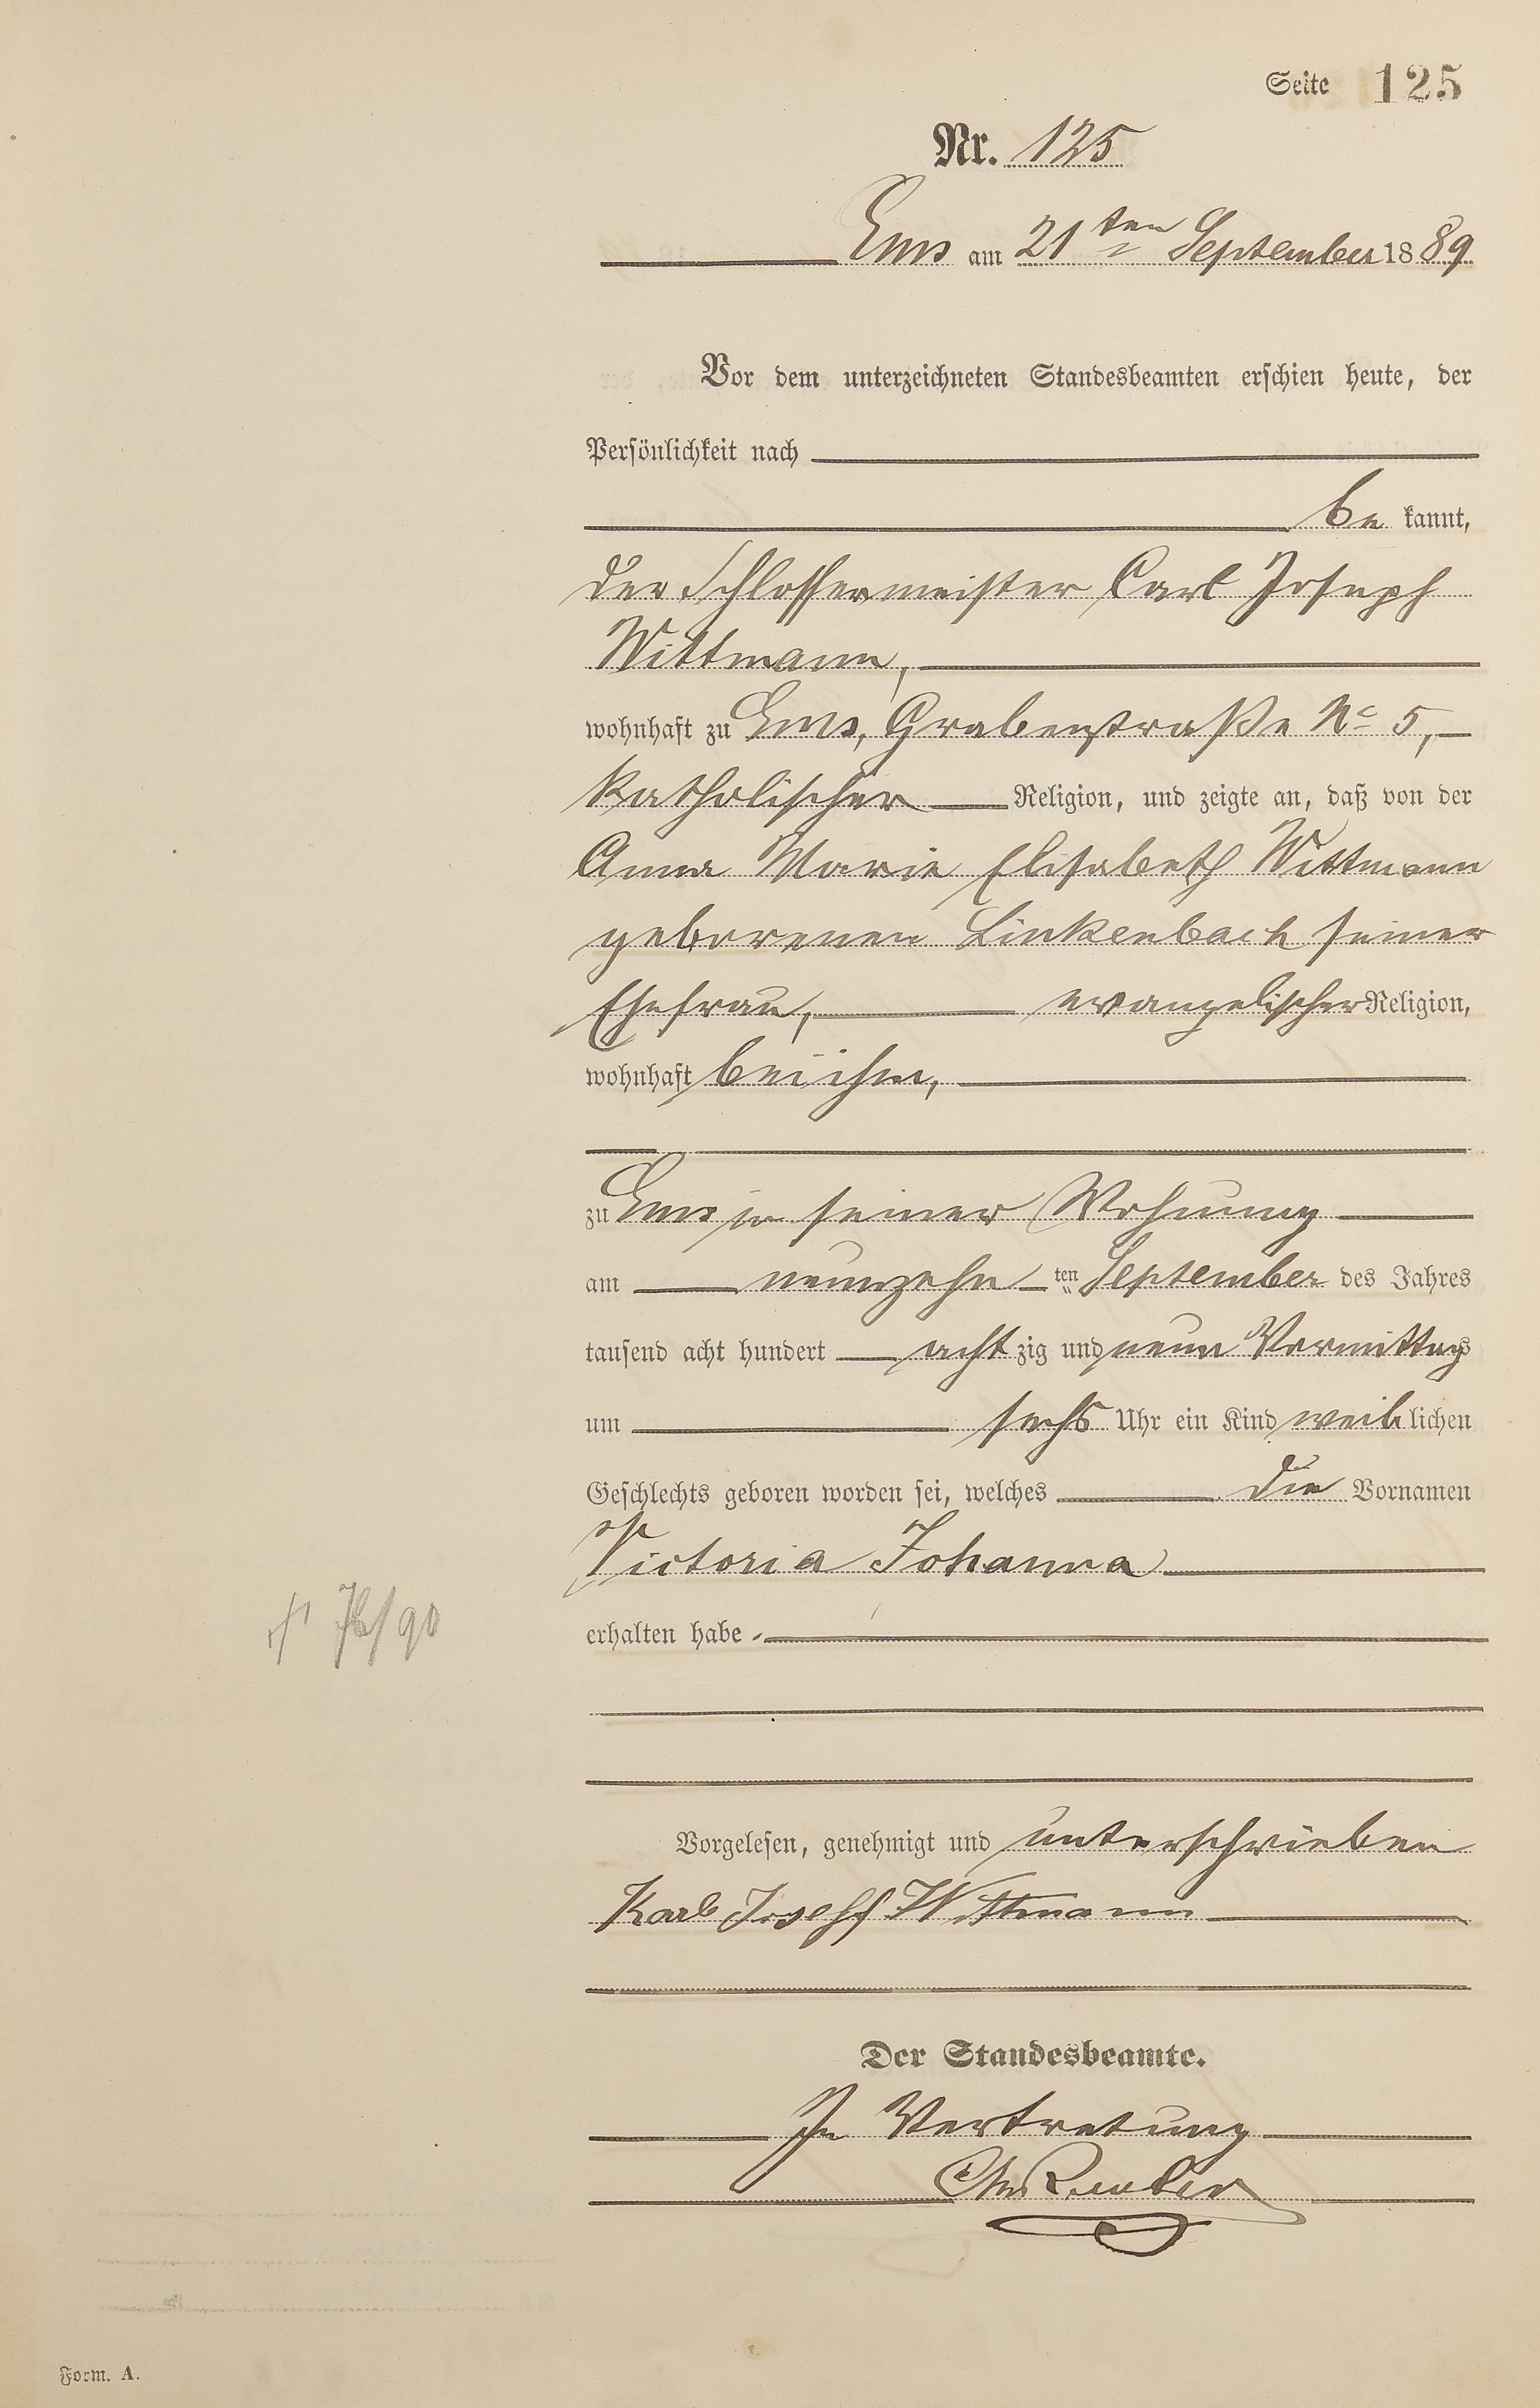 Seite 125
Nr. 125
Ems am 21ten September 1889
Vor dem unterzeichneten Standesbeamten erschien heute, der
Persönlichkeit nach
be kannt,
der Schlossermeister Carl Joseph
Wittmann,
wohnhaft zu Ems, Grabenstraße No 5,
katholischer Religion, und zeigte an, daß von der
Anna Marie Elisabeth Wittmann
geborenen Linkenbach seiner
Ehefrau, evangelischer Religion,
wohnhaft bei ihm,
zu Ems in seiner Wohnung
am neunzehn ten September des Jahres
tausend acht hundert acht zig und neun Vormittags
um sechs Uhr ein Kind weib lichen
Geschlechts geboren worden sei, welches die Vornamen
Victoria Johanna
erhalten habe.
/90
Vorgelesen, genehmigt und unterschrieben
Karl Joseph Wittmann
Der Standesbeamte.
In Vertretung
Form. A.